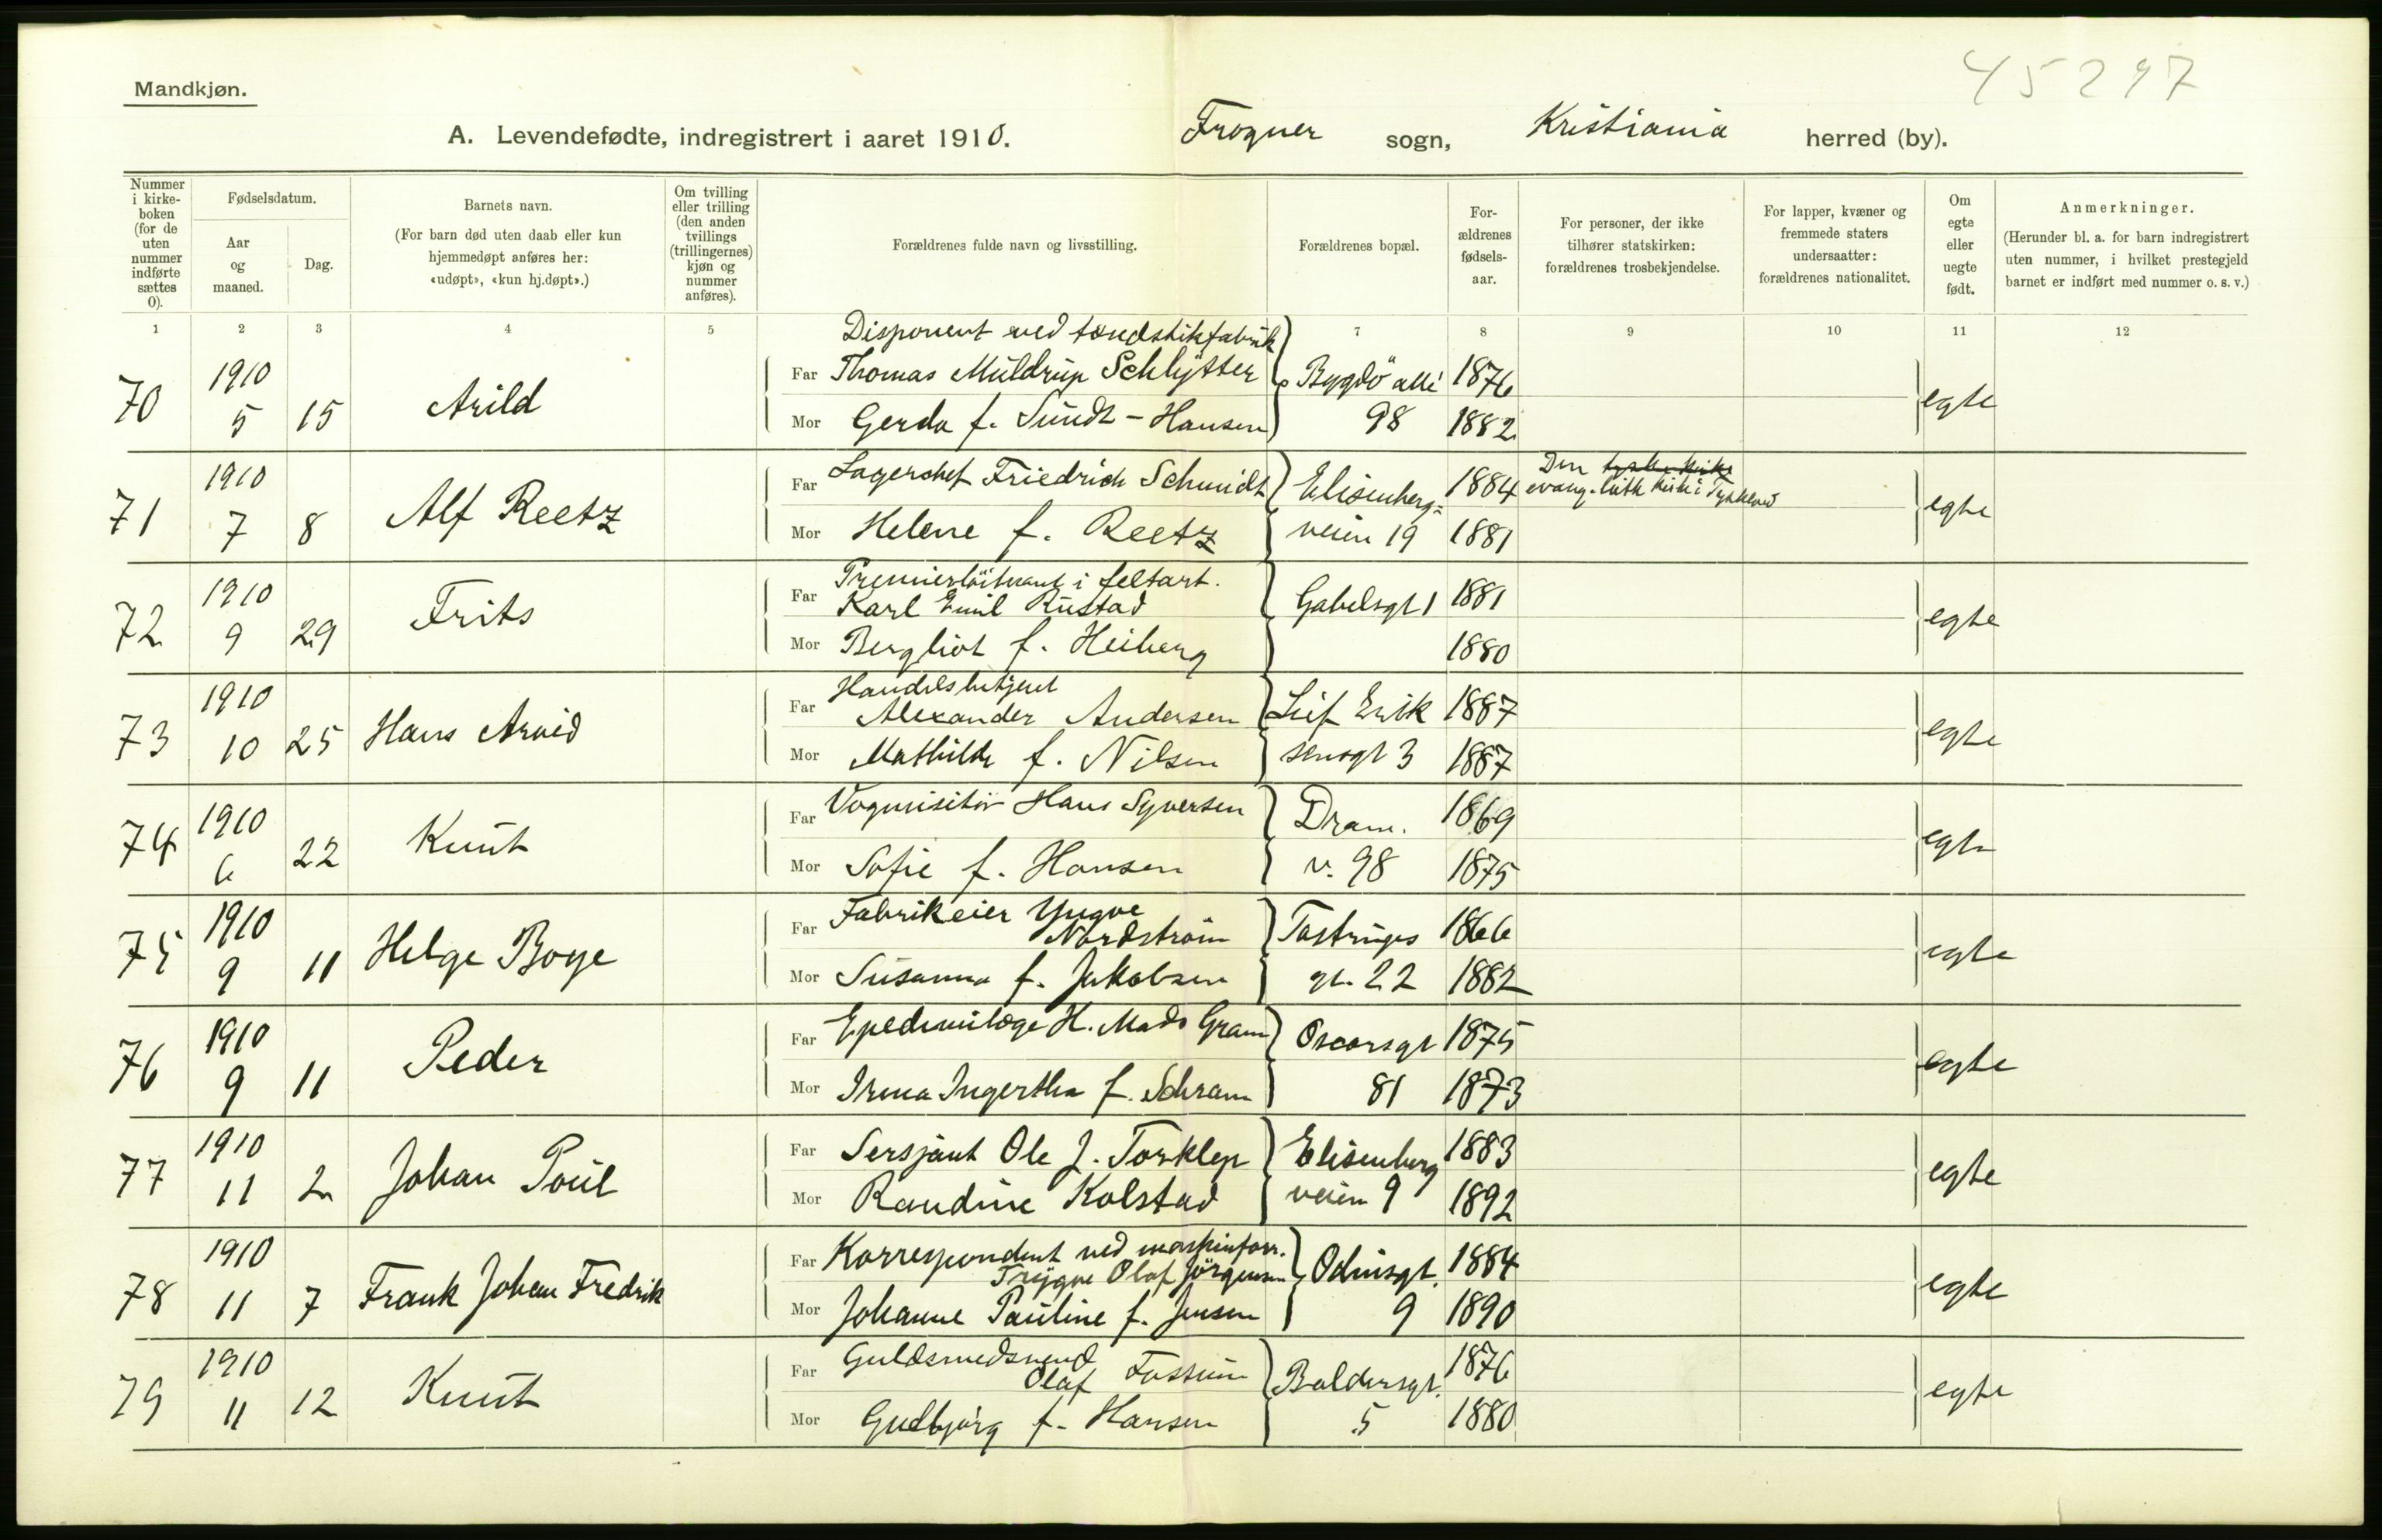 45297
Mandkjøn.
A. Levendefødte, indregistrert i aaret 1910. Frogner sogn, Kristiania herred (by).
Nummer i kirke-boken (for de uten nummer indførte sættes 0).
Fødselsdatum.
Aar og maaned.
Dag.
Barnets navn.
(For barn død uten daab eller kun hjemmedøpt anføres her: «udøpt», «kun hj.døpt».)
Om tvilling eller trilling (den anden tvillings (trillingernes) kjøn og nummer anføres).
Forældrenes fulde navn og livsstilling.
Forældrenes bopæl.
For-ældrenes fødsels-aar.
For personer, der ikke tilhører statskirken: forældrenes trosbekjendelse.
For lapper, kvæner og fremmede staters undersaatter: forældrenes nationalitet.
Om egte eller uegte født.
Anmerkninger.
(Herunder bl. a. for barn indregistrert uten nummer, i hvilket prestegjeld barnet er indført med nummer o. s. v.)
1 2 3 4 5 7 8 9 10 11 12
Disponent ved tændstikfabrik
70 1910 5 15 Arild Far Thomas Müldrup Schlytter Bygdö allé 1876 egte
Mor Gerda f. Sundt-Hansen 98 1882
71 1910 7 8 Alf Reetz Far Lagerchef Friedrich Schmidt Elisenberg= 1884 Den tyske kirke evang. luth kirke i Tyskland egte
Mor Helene f. Reetz veien 19 1881
72 1910 9 29 Frits Far Premierlöitnant i feltart.
Karl Emil Rustad Gabelsgt 1 1881 egte
Mor Bergliot f. Heiberg 1880
73 1910 10 25 Hans Arvid Far Handelsbetjent
Alexander Andersen Leif Erik 1887 egte
Mor Mathilde f. Nilsen sensgt 3 1887
74 1910 6 22 Knut Far Vognvisitör Hans Syversen Dram. 1869 egte
Mor Sofie f. Hansen v. 98 1875
75 1910 9 11 Helge Boye Far Fabrikeier Yngve
Nordström Tostrups 1866 egte
Mor Susanna f. Jakobsen gt. 22 1882
76 1910 9 11 Peder Far Epedemilæge H. Mads Gram Oscarsgt 1875 egte
Mor Irma Ingertha f. Schram 81 1873
77 1910 11 2 Johan Poul Far Sersjant Ole J. Torklep Elisenberg 1883 egte
Mor Randine Kolstad veien 9 1892
78 1910 11 7 Frank Johan Fredrik Far Korrespondent ved maskinforr.
Trygve Olaf Jörgensen Odinsgt. 1884 egte
Mor Johanne Pauline f. Jensen 9 1890
79 1910 11 12 Knut Far Guldsmedsvend
Olaf Fossum Baldersgt. 1876 egte
Mor Gudbjörg f. Hansen 5 1880